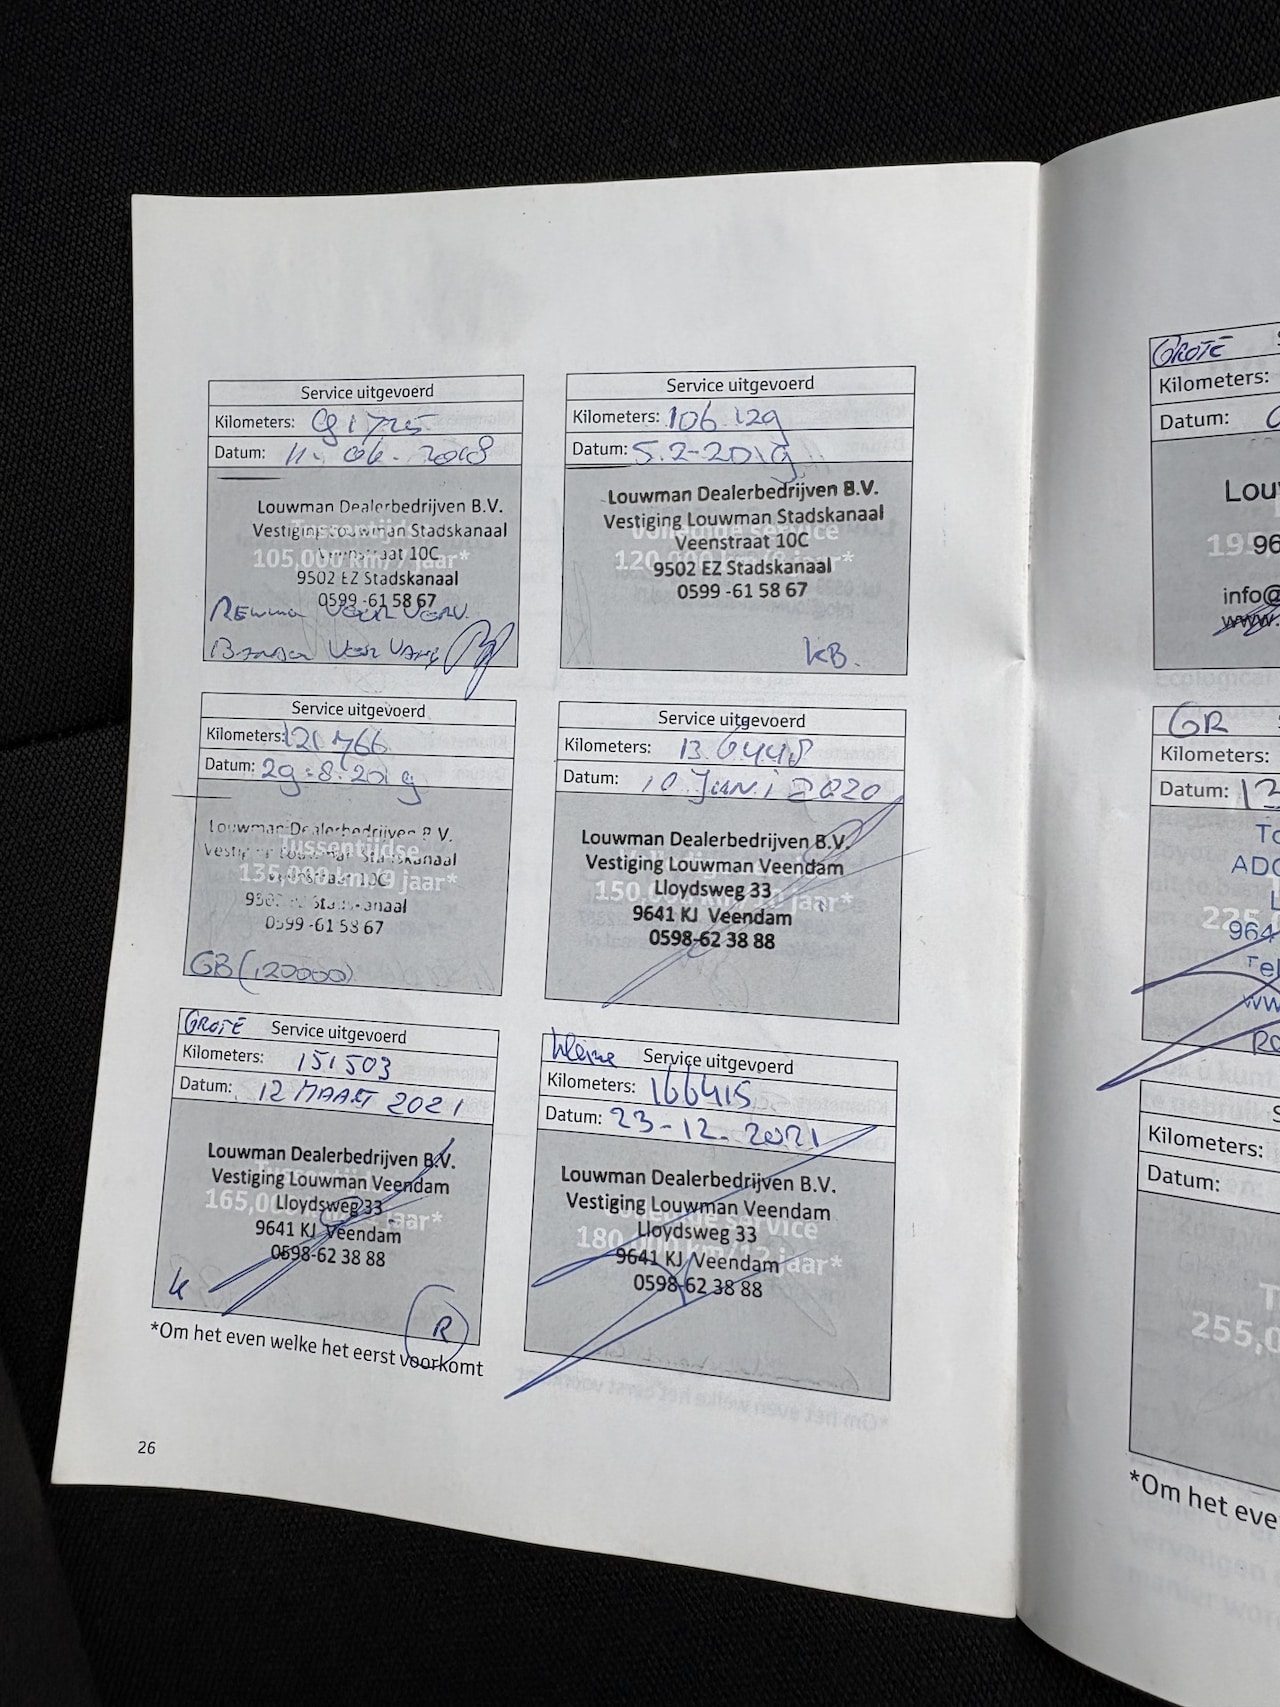 Service uitgevoerd
Kilometers: 91725
Datum: 11.06.2018
Louwman Dealerbedrijven B.V.
Vestiging Louwman Stadskanaal
Tussentijdse
Veenstraat 10C
105,000 km/7 jaar*
9502 EZ Stadskanaal
0599 -61 58 67
REMMEN VOOR VERV.
BANDEN VOOR VERV.
Service uitgevoerd
Kilometers: 106.129
Datum: 5.2-2019
Louwman Dealerbedrijven B.V.
Vestiging Louwman Stadskanaal
Volledige service
Veenstraat 10C
120,000 km/8 jaar*
9502 EZ Stadskanaal
0599 -61 58 67
KB.
Service uitgevoerd
Kilometers: 121766
Datum: 29.8.2019
Louwman Dealerbedrijven B.V.
Vestiging Louwman Stadskanaal
Tussentijdse
Veenstraat 10C
135,000 km/9 jaar*
9502 EZ Stadskanaal
0599 -61 58 67
GB (120000)
Service uitgevoerd
Kilometers: 136448
Datum: 10 Juni 2020
Louwman Dealerbedrijven B.V.
Vestiging Louwman Veendam
Lloydsweg 33
150,000 km/10 jaar*
9641 KJ Veendam
0598-62 38 88
GROTE Service uitgevoerd
Kilometers: 151503
Datum: 12 MAART 2021
Louwman Dealerbedrijven B.V.
Tussentijdse
Vestiging Louwman Veendam
Lloydsweg 33
165,000 km/11 jaar*
9641 KJ Veendam
0598-62 38 88
R
*Om het even welke het eerst voorkomt
kleine Service uitgevoerd
Kilometers: 166415
Datum: 23-12-2021
Louwman Dealerbedrijven B.V.
Vestiging Louwman Veendam
Volledige service
Lloydsweg 33
180,000 km/12 jaar*
9641 KJ Veendam
0598-62 38 88
26
GROTE
Kilometers:
Datum:
Lou
195
96
info@
www.
GR
Kilometers:
Datum: 12
To
ADO
L
225
964
Tel
ww
Ro
Kilometers:
Datum:
T
255,0
*Om het eve